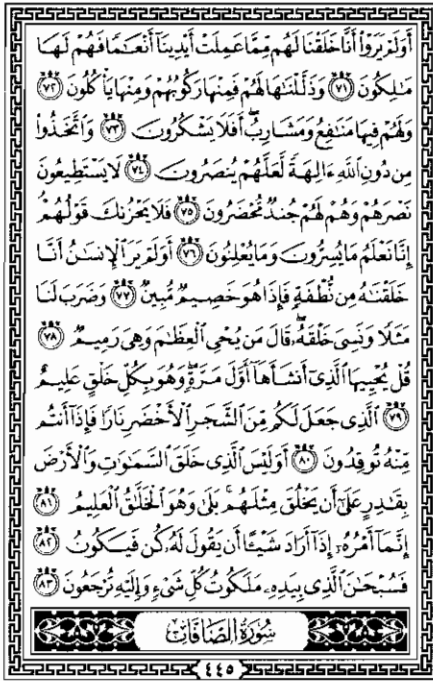 أَوَلَمْ يَرَوْا۟ أَنَّا خَلَقْنَا لَهُم مِّمَّا عَمِلَتْ أَيْدِينَآ أَنْعَـٰمًا فَهُمْ لَهَا
مَـٰلِكُونَ ٧١ وَذَلَّلْنَـٰهَا لَهُمْ فَمِنْهَا رَكُوبُهُمْ وَمِنْهَا يَأْكُلُونَ ٧٢
وَلَهُمْ فِيهَا مَنَـٰفِعُ وَمَشَارِبُ ۖ أَفَلَا يَشْكُرُونَ ٧٣ وَٱتَّخَذُوا۟
مِن دُونِ ٱللَّهِ ءَالِهَةً لَّعَلَّهُمْ يُنصَرُونَ ٧٤ لَا يَسْتَطِيعُونَ
نَصْرَهُمْ وَهُمْ لَهُمْ جُندٌ مُّحْضَرُونَ ٧٥ فَلَا يَحْزُنكَ قَوْلُهُمْ ۘ
إِنَّا نَعْلَمُ مَا يُسِرُّونَ وَمَا يُعْلِنُونَ ٧٦ أَوَلَمْ يَرَ ٱلْإِنسَـٰنُ أَنَّا
خَلَقْنَـٰهُ مِن نُّطْفَةٍ فَإِذَا هُوَ خَصِيمٌ مُّبِينٌ ٧٧ وَضَرَبَ لَنَا
مَثَلًا وَنَسِىَ خَلْقَهُۥ ۖ قَالَ مَن يُحْىِ ٱلْعِظَـٰمَ وَهِىَ رَمِيمٌ ٧٨
قُلْ يُحْيِيهَا ٱلَّذِىٓ أَنشَأَهَآ أَوَّلَ مَرَّةٍ ۖ وَهُوَ بِكُلِّ خَلْقٍ عَلِيمٌ
٧٩ ٱلَّذِى جَعَلَ لَكُم مِّنَ ٱلشَّجَرِ ٱلْأَخْضَرِ نَارًا فَإِذَآ أَنتُم
مِّنْهُ تُوقِدُونَ ٨٠ أَوَلَيْسَ ٱلَّذِى خَلَقَ ٱلسَّمَـٰوَٰتِ وَٱلْأَرْضَ
بِقَـٰدِرٍ عَلَىٰٓ أَن يَخْلُقَ مِثْلَهُم ۚ بَلَىٰ وَهُوَ ٱلْخَلَّـٰقُ ٱلْعَلِيمُ ٨١
إِنَّمَآ أَمْرُهُۥٓ إِذَآ أَرَادَ شَيْـًٔا أَن يَقُولَ لَهُۥ كُن فَيَكُونُ ٨٢
فَسُبْحَـٰنَ ٱلَّذِى بِيَدِهِۦ مَلَكُوتُ كُلِّ شَىْءٍ وَإِلَيْهِ تُرْجَعُونَ ٨٣
سُورَةُ الصَّافَّاتِ
٤٤٥